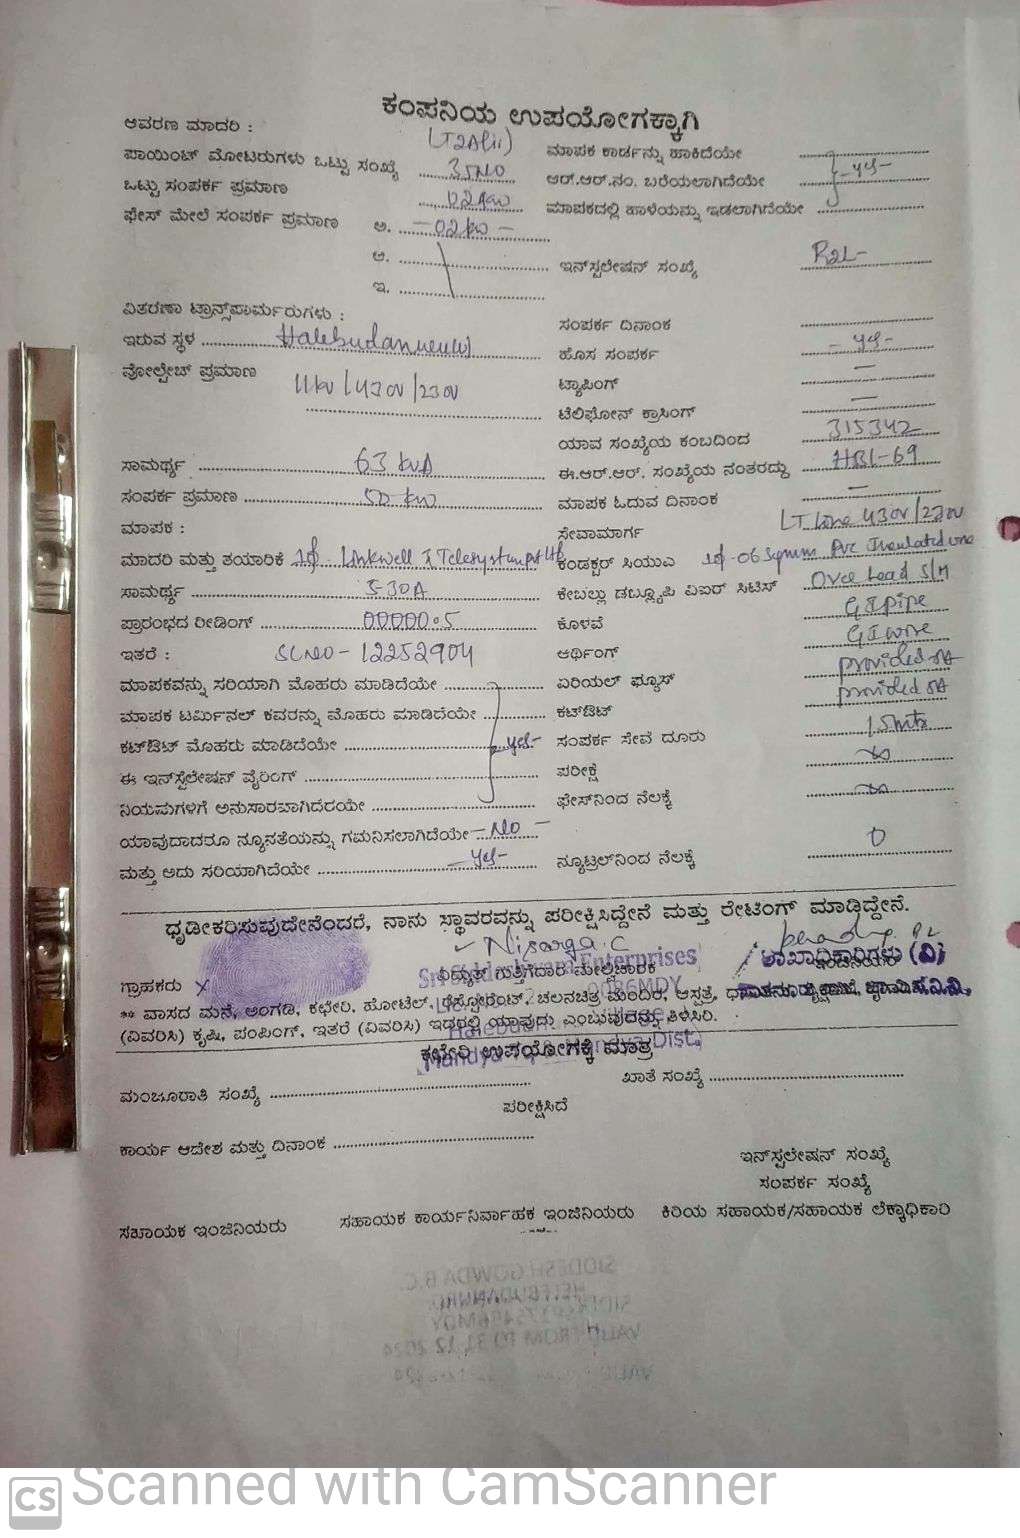 ಕಂಪನಿಯ ಉಪಯೋಗಕ್ಕಾಗಿ
ಆವರಣ ಮಾದರಿ :
ಪಾಯಿಂಟ್ ಮೋಟರುಗಳು ಒಟ್ಟು ಸಂಖ್ಯೆ 35NO
ಒಟ್ಟು ಸಂಪರ್ಕ ಪ್ರಮಾಣ 02kw
ಫೇಸ್ ಮೇಲೆ ಸಂಪರ್ಕ ಪ್ರಮಾಣ ಅ. -02kw-
ಆ.
ಇ.
ಮಾಪಕ ಕಾರ್ಡನ್ನು ಹಾಕಿದೆಯೇ
ಆರ್.ಆರ್.ನಂ. ಬರೆಯಲಾಗಿದೆಯೇ -yes-
ಮಾಪಕದಲ್ಲಿ ಹಾಳೆಯನ್ನು ಇಡಲಾಗಿದೆಯೇ
ಇನ್‌ಸ್ಟಲೇಷನ್ ಸಂಖ್ಯೆ
ವಿತರಣಾ ಟ್ರಾನ್ಸ್‌ಫಾರ್ಮರುಗಳು :
ಇರುವ ಸ್ಥಳ
ವೋಲ್ಟೇಜ್ ಪ್ರಮಾಣ 11kv/430V/230V
ಸಾಮರ್ಥ್ಯ 63 kVA
ಸಂಪರ್ಕ ಪ್ರಮಾಣ 50 kw
ಸಂಪರ್ಕ ದಿನಾಂಕ
ಹೊಸ ಸಂಪರ್ಕ -yes-
ಟ್ಯಾಪಿಂಗ್ —
ಟೆಲಿಫೋನ್ ಕ್ರಾಸಿಂಗ್ —
ಯಾವ ಸಂಖ್ಯೆಯ ಕಂಬದಿಂದ 315342
ಈ.ಆರ್.ಆರ್. ಸಂಖ್ಯೆಯ ನಂತರದ್ದು HBL-69
ಮಾಪಕ ಓದುವ ದಿನಾಂಕ —
ಮಾಪಕ :
ಮಾದರಿ ಮತ್ತು ತಯಾರಿಕೆ 1φ Linkwell Telesystem Pvt Ltd
ಸಾಮರ್ಥ್ಯ 5-30A
ಪ್ರಾರಂಭದ ರೀಡಿಂಗ್ 00000.5
ಇತರೆ : SLNO-12252904
ಮಾಪಕವನ್ನು ಸರಿಯಾಗಿ ಮೊಹರು ಮಾಡಿದೆಯೇ
ಮಾಪಕ ಟರ್ಮಿನಲ್ ಕವರನ್ನು ಮೊಹರು ಮಾಡಿದೆಯೇ
ಕಟ್‌ಔಟ್ ಮೊಹರು ಮಾಡಿದೆಯೇ -yes-
ಈ ಇನ್‌ಸ್ಟಲೇಷನ್ ವೈರಿಂಗ್
ನಿಯಮಗಳಿಗೆ ಅನುಸಾರವಾಗಿದೆಯೇ
ಯಾವುದಾದರೂ ನ್ಯೂನತೆಯನ್ನು ಗಮನಿಸಲಾಗಿದೆಯೇ -NO-
ಮತ್ತು ಅದು ಸರಿಯಾಗಿದೆಯೇ -yes-
ಸೇವಾಮಾರ್ಗ LT Line 430V/230V
ಕಂಡಕ್ಟರ್ ಸಿಯುಎ 1φ-06 Sqmm PVC Insulated wire
ಕೇಬಲ್ಲು ಡಬ್ಲ್ಯೂಪಿ ವಿಐರ್ ಸಿಟಿಸ್ Over head S/M
ಕೊಳವೆ GI pipe
ಅರ್ಥಿಂಗ್ GI wire
ಏರಿಯಲ್ ಫ್ಯೂಸ್ provided
ಕಟ್‌ಔಟ್ provided
ಸಂಪರ್ಕ ಸೇವೆ ದೂರು 15mtr
ಪರೀಕ್ಷೆ ∞
ಫೇಸ್‌ನಿಂದ ನೆಲಕ್ಕೆ ∞
ನ್ಯೂಟ್ರಲ್‌ನಿಂದ ನೆಲಕ್ಕೆ 0
ಧೃಡೀಕರಿಸುವುದೇನೆಂದರೆ, ನಾನು ಸ್ಥಾವರವನ್ನು ಪರೀಕ್ಷಿಸಿದ್ದೇನೆ ಮತ್ತು ರೇಟಿಂಗ್ ಮಾಡಿದ್ದೇನೆ.
Nisarga.C
Enterprises
ಗ್ರಾಹಕರು ವಿದ್ಯುತ್ ಗುತ್ತಿಗೆದಾರ ಮೇಲ್ವಿಚಾರಕ
ಶಾಖಾಧಿಕಾರಿಗಳು (ವಿ)
** ವಾಸದ ಮನೆ, ಅಂಗಡಿ, ಕಛೇರಿ, ಹೋಟೆಲ್, ರೆಸ್ಟೋರೆಂಟ್, ಚಲನಚಿತ್ರ ಮಂದಿರ, ಆಸ್ಪತ್ರೆ,
(ವಿವರಿಸಿ) ಕೃಷಿ, ಪಂಪಿಂಗ್, ಇತರೆ (ವಿವರಿಸಿ) ಇದರಲ್ಲಿ ಯಾವುದು ಎಂಬುವುದನ್ನು ತಿಳಿಸಿರಿ.
ಕಛೇರಿ ಉಪಯೋಗಕ್ಕೆ ಮಾತ್ರ
ಮಂಜೂರಾತಿ ಸಂಖ್ಯೆ
ಖಾತೆ ಸಂಖ್ಯೆ
ಪರೀಕ್ಷಿಸಿದೆ
ಕಾರ್ಯ ಆದೇಶ ಮತ್ತು ದಿನಾಂಕ
ಇನ್‌ಸ್ಟಲೇಷನ್ ಸಂಖ್ಯೆ
ಸಂಪರ್ಕ ಸಂಖ್ಯೆ
ಸಹಾಯಕ ಇಂಜಿನಿಯರು ಸಹಾಯಕ ಕಾರ್ಯನಿರ್ವಾಹಕ ಇಂಜಿನಿಯರು ಕಿರಿಯ ಸಹಾಯಕ/ಸಹಾಯಕ ಲೆಕ್ಕಾಧಿಕಾರಿ
CS Scanned with CamScanner